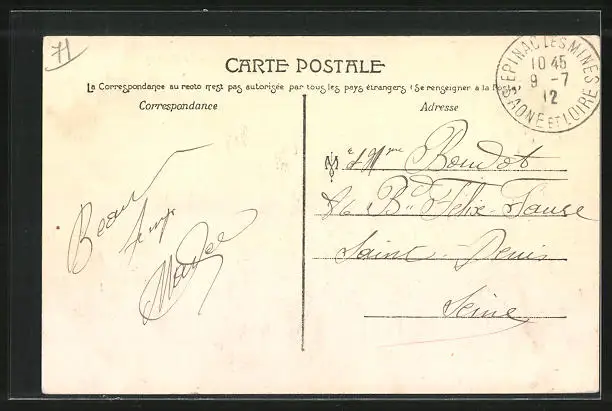 71
CARTE POSTALE
La Correspondance au recto n'est pas autorisée par tous les pays étrangers (Se renseigner à la Poste)
Correspondance
Adresse
EPINAC LES MINES
10 45
9 - 7
12
SAONE ET LOIRE
Beau
temps
M et Mme Boudot
Bd Félix-Faure
Saint-Denis
Seine